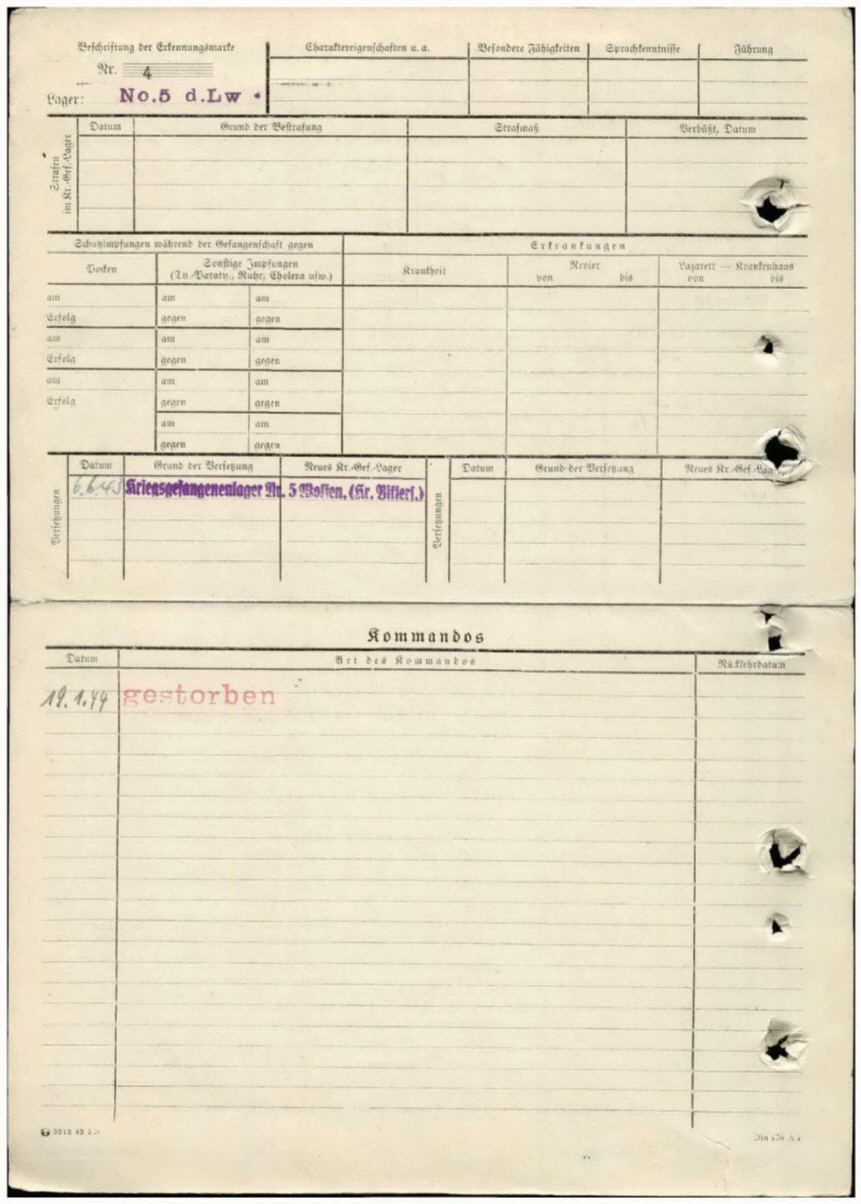 Beschriftung der Erkennungsmarke
Nr. 4
Lager: No.5 d.Lw
Charaktereigenschaften u. a. Besondere Fähigkeiten Sprachkenntnisse Führung
Strafen im Kr.-Gef.-Lager
Datum Grund der Bestrafung Strafmaß Verbüßt, Datum
Schutzimpfungen während der Gefangenschaft gegen Erkrankungen
Pocken Sonstige Impfungen Krankheit Revier Lazarett — Krankenhaus
(Ty.-Paraty., Ruhr, Cholera usw.) von bis von bis
am am am
Erfolg gegen gegen
am am am
Erfolg gegen gegen
am am am
Erfolg gegen gegen
am am
gegen gegen
Versetzungen
Datum Grund der Versetzung Neues Kr.-Gef.-Lager
6.6.43 Kriegsgefangenenlager Nr. 5 Wolfen, (Kr. Bitterf.)
Versetzungen
Datum Grund der Versetzung Neues Kr.-Gef.-Lager
Kommandos
Datum Art des Kommandos Rückkehrdatum
19.1.44 gestorben
Din 476 A 4